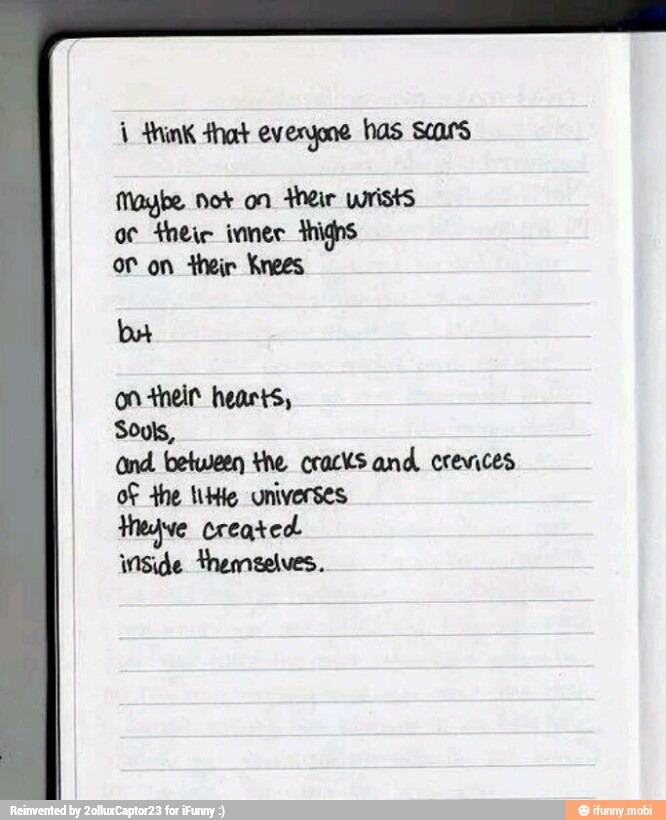 i think that everyone has scars
maybe not on their wrists
or their inner thighs
or on their knees
but
on their hearts,
souls,
and between the cracks and crevices
of the little universes
they've created
inside themselves.
Reinvented by 2olluxCaptor23 for iFunny :)
ifunny.mobi